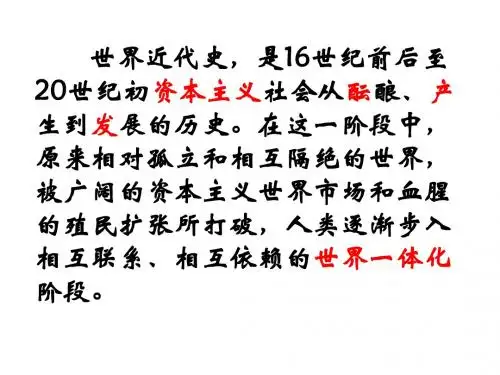 世界近代史，是16世纪前后至
20世纪初资本主义社会从酝酿、产
生到发展的历史。在这一阶段中，
原来相对孤立和相互隔绝的世界，
被广阔的资本主义世界市场和血腥
的殖民扩张所打破，人类逐渐步入
相互联系、相互依赖的世界一体化
阶段。